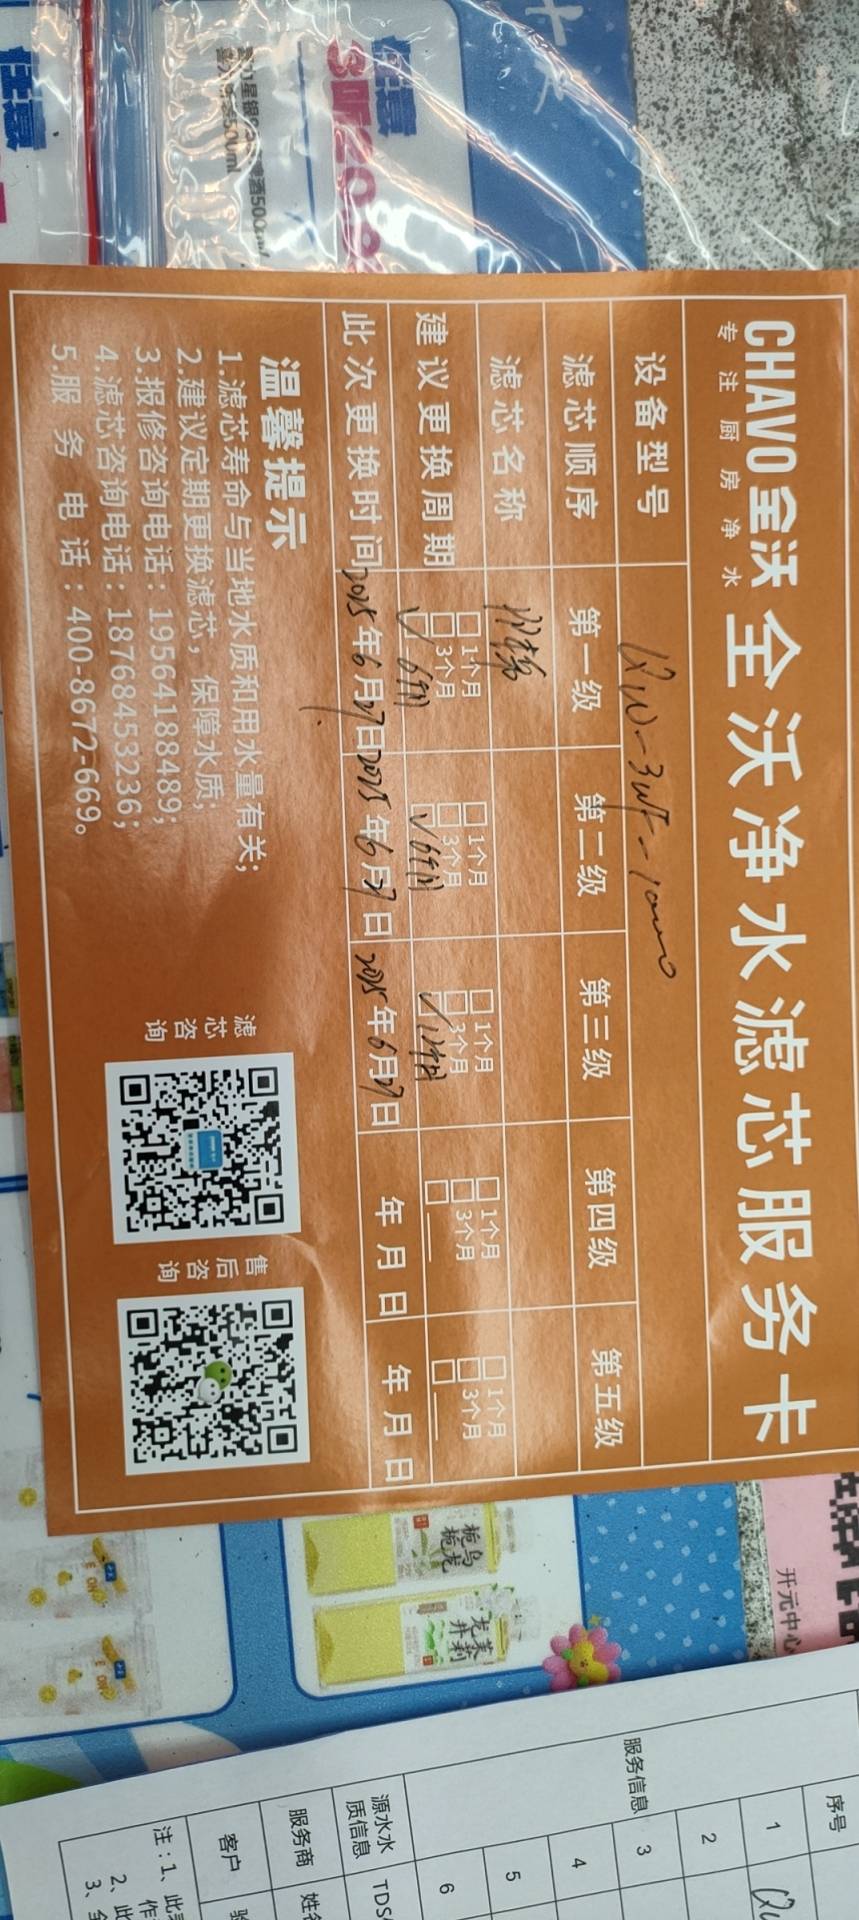 CHAVO全沃
专注厨房净水
全沃净水滤芯服务卡
设备型号
滤芯顺序 第一级 第二级 第三级 第四级 第五级
滤芯名称
建议更换周期
□1个月 □1个月 □1个月 □1个月 □1个月
□3个月 □3个月 □3个月 □3个月 □3个月
✓6个月 ✓6个月 ✓12个月 □ □
此次更换时间 2025年6月27日 2025年6月27日 2025年6月27日 年月日 年月日
温馨提示
1.滤芯寿命与当地水质和用水量有关;
2.建议定期更换滤芯，保障水质;
3.报修咨询电话:19564188489;
4.滤芯咨询电话:18768453236;
5.服务电话:400-8672-669。
滤芯咨询
售后咨询
任意
500ml
栀栀乌龙
茉莉龙井
开元中心
序号
服务信息
1
2
3
4
5
6
源水水质信息
TDS
服务商
客户
注:1、此
2、此
3、全